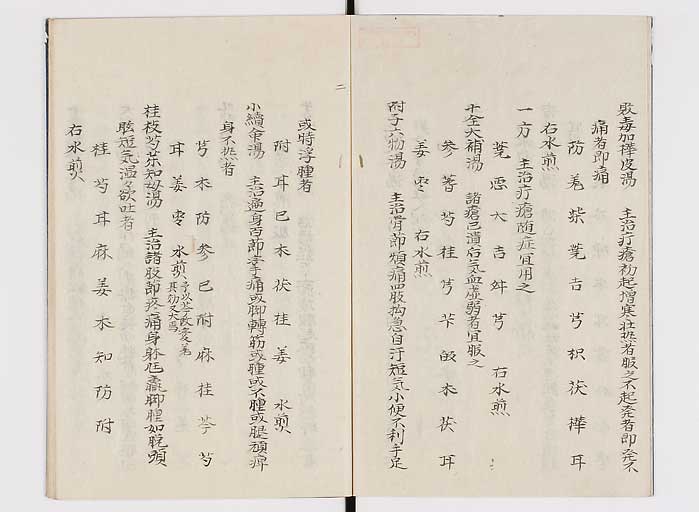 敗毒加樺皮湯 主治疔瘡初起憎寒壮熱者服之不起発者即発不
痛者即痛
防 羌 柴 荊 吉 芎 枳 茯 樺 耳
右水煎
一方 主治疔瘡随症宜用之
荊 大 吉 芎 右水煎
十全大補湯 諸瘡已潰后気血虚弱者宜服之
参 芎 桂 朮 茯 耳
姜 枣 右水煎
附子六物湯 主治骨節煩痛四肢拘急自汗短気小便不利手足
或時浮腫者
附 耳 巳 朮 茯 桂 姜 水煎
小續命湯 主治遍身百節痛或脚轉筋或腫或不腫或腿頑痺
身不熱者
芎 朮 防 参 巳 附 麻 桂 芩 芍
耳 姜 枣 水煎
桂枝芍薬知母湯 主治諸肢節疼痛身躰尫羸脚腫如脱頭
眩短気温々欲吐者
桂 芍 耳 麻 姜 朮 知 防 附
右水煎